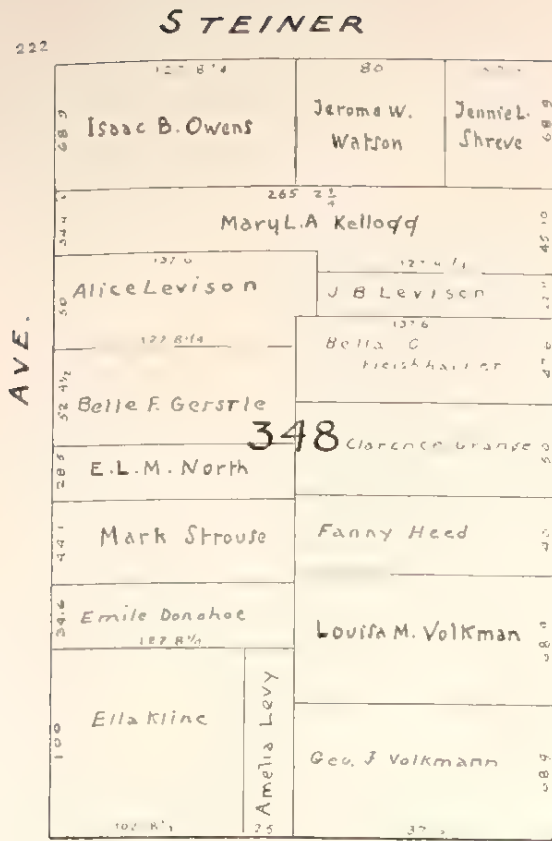 STEINER
222
127 8 1/4
80
68 9
Isaac B. Owens
Jerome W.
Watson
Jennie L.
Shreve
68 9
265 2 1/4
34 4
Mary L.A Kellogg
45 10
137 6
50
Alice Levison
J B Levison
AVE.
127 8 1/4
137 6
Bella C
47 6
52 4 1/2
Belle F. Gerstle
348
Clarence Grange
50
28 5
E.L.M. North
44 1
Mark Strouse
Fanny Heed
34.6
Emile Donahoe
127 8 1/4
Louisa M. Volkman
68 9
100
Ella Kline
Amelia Levy
Geo. J Volkmann
68 9
102 8 1/4
25